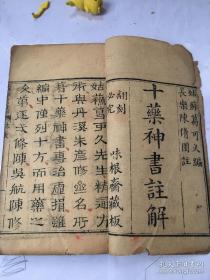 姑蘇葛可久編
長樂陳修園註
十藥神書註解
翻刻必究
味根齋藏板
姑蘇葛可久先生精
術與丹溪朱彥修並名所
著十藥神書專治虛損雖
編中僅列十方而用藥之
第逐一條陳吳航陳修